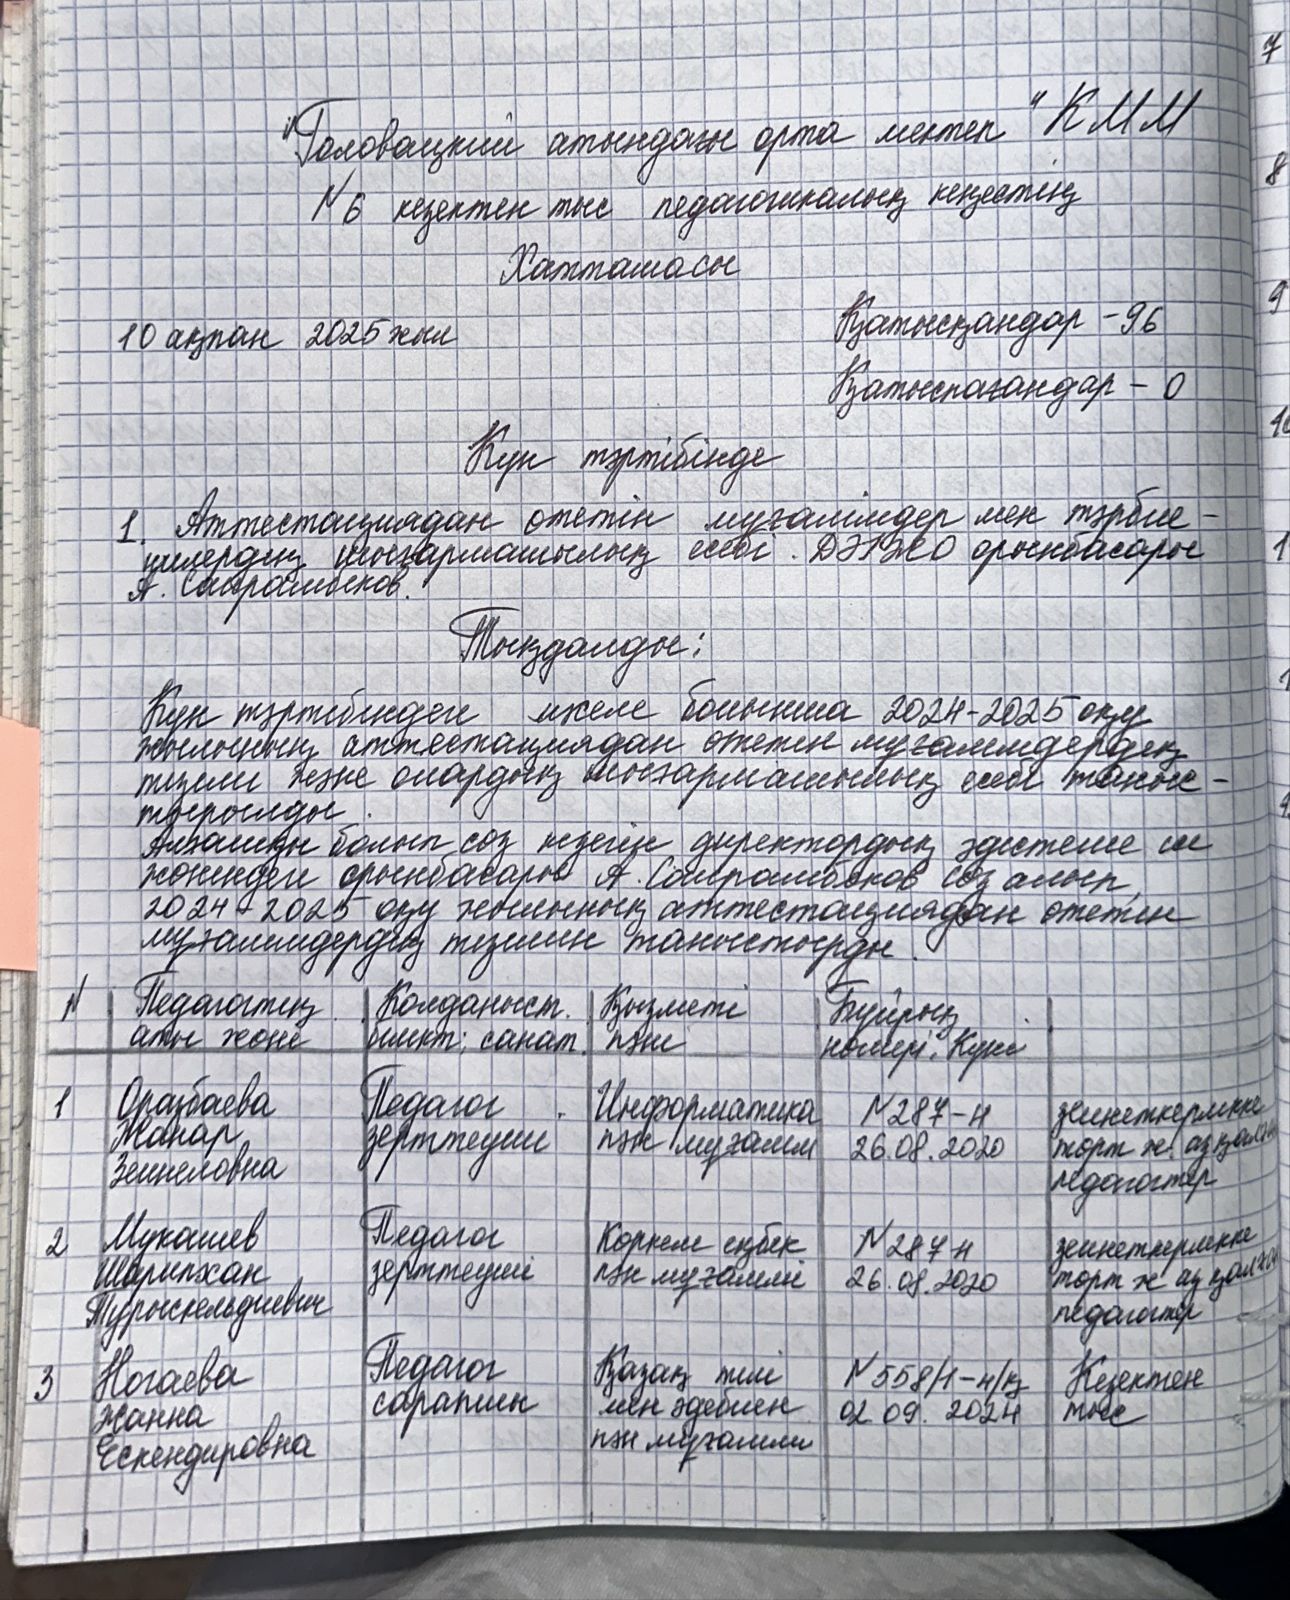 "Головацкий атындағы орта мектеп" КММ
№6 кезектен тыс педагогикалық кеңестің
Хаттамасы
10 ақпан 2025 жыл
Қатысқандар - 96
Қатыспағандар - 0
Күн тәртібінде
1. Аттестациядан өтетін мұғалімдер мен тәрбие-
шілердің шығармашылық есебі. ДӘІЖО орынбасары
А. Сайрамбеков.
Тыңдалды:
Күн тәртібіндегі мәселе бойынша 2024-2025 оқу
жылының аттестациядан өтетін мұғалімдердің
тізімі және олардың шығармашылық есебі таныс-
тырылды.
Алғашқы болып сөз кезегін директордың әдістеме ісі
жөніндегі орынбасары А. Сайрамбеков сөз алып,
2024-2025 оқу жылының аттестациядан өтетін
мұғалімдердің тізімін таныстырды.
N Педагогтің Қолданыст. Қызметі Бұйрық
аты жөні білікт; санат. пәні номері. Күні
1 Оразбаева Педагог Информатика №287-н зейнеткерлікке
Жанар зерттеуші пән мұғалімі 26.08.2020 төрт ж. аз қалған
Зейнеловна педагогтер
2 Мукашев Педагог Көркем еңбек №287 н зейнеткерлікке
Шарипхан зерттеуші пән мұғалімі 26.08.2020 төрт ж аз қалған
Турыскельдиевич педагогтер
3 Ногаева Педагог Қазақ тілі №558/1-н/қ Кезектен
Жанна сарапшы мен әдебиет 02.09.2024 тыс
Ескендировна пән мұғалімі
7
8
9